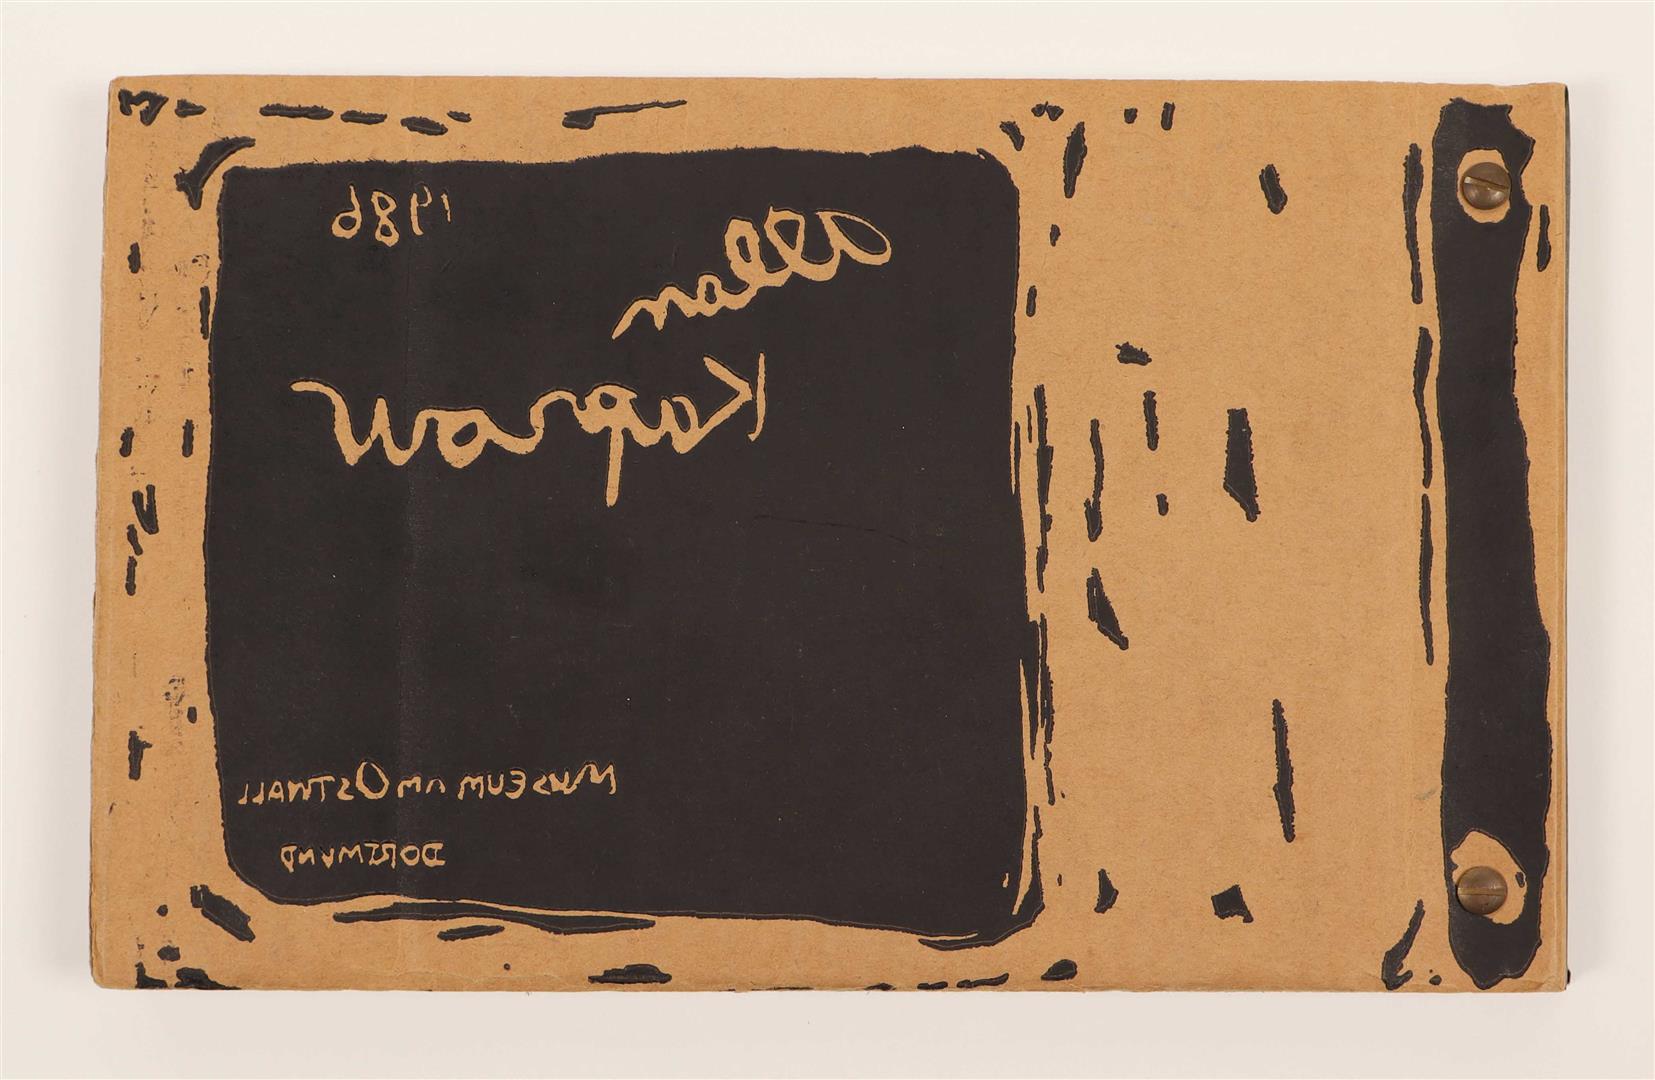 1986
allan
Kaprow
MUSEUM am OSTWALL
DORTMUND